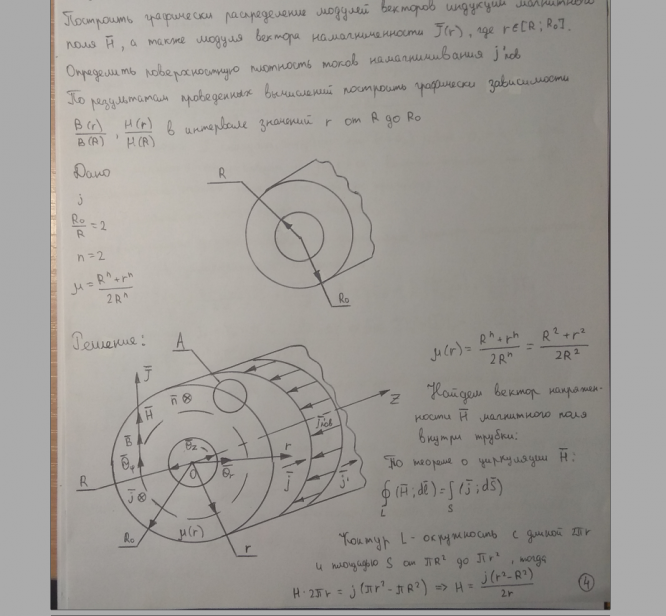 Построить графически распределение модулей векторов индукции магнитного
поля H̄, а также модуля вектора намагниченности J̄(r), где r∈[R; R₀].
Определить поверхностную плотность токов намагничивания j'пов
По результатам проведенных вычислений построить графически зависимости
B(r)/B(R), H(r)/H(R) в интервале значений r от R до R₀
Дано
j
R₀/R = 2
n = 2
μ = (Rⁿ + rⁿ)/2Rⁿ
R
R₀
Решение:
A
J̄
H̄
B̄
ē_φ
n̄ ⊗
j̄ ⊗
ē_z
ē_r
O
r
z
j̄'пов
j̄
j̄'
R
R₀
μ(r)
r
μ(r) = (Rⁿ + rⁿ)/2Rⁿ = (R² + r²)/2R²
Найдем вектор напряжен-
ности H̄ магнитного поля
внутри трубки:
По теореме о циркуляции H̄:
∮_L (H̄; dl̄) = ∫_S (j̄; ds̄)
Контур L - окружность с длиной 2πr
и площадью S от πR² до πr², тогда
H · 2πr = j(πr² - πR²) ⇒ H = j(r² - R²)/2r
4